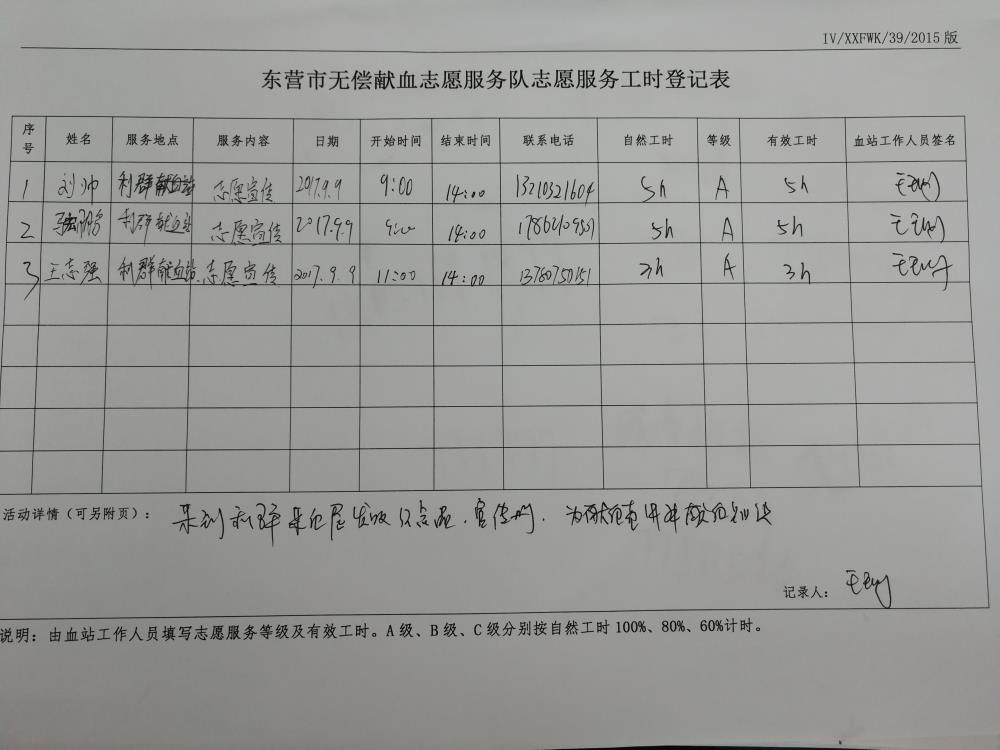 IV/XXFWK/39/2015版
东营市无偿献血志愿服务队志愿服务工时登记表
序号 姓名 服务地点 服务内容 日期 开始时间 结束时间 联系电话 自然工时 等级 有效工时 血站工作人员签名
1 刘帅 利群献血站 志愿宣传 2017.9.9 9:00 14:00 13210321604 5h A 5h
2 利群献血站 志愿宣传 2017.9.9 9:00 14:00 5h A 5h
3 王志强 利群献血站 志愿宣传 2017.9.9 11:00 14:00 13760750151 3h A 3h
活动详情（可另附页）： 来到利群 宣传
记录人：
说明：由血站工作人员填写志愿服务等级及有效工时。A级、B级、C级分别按自然工时100%、80%、60%计时。